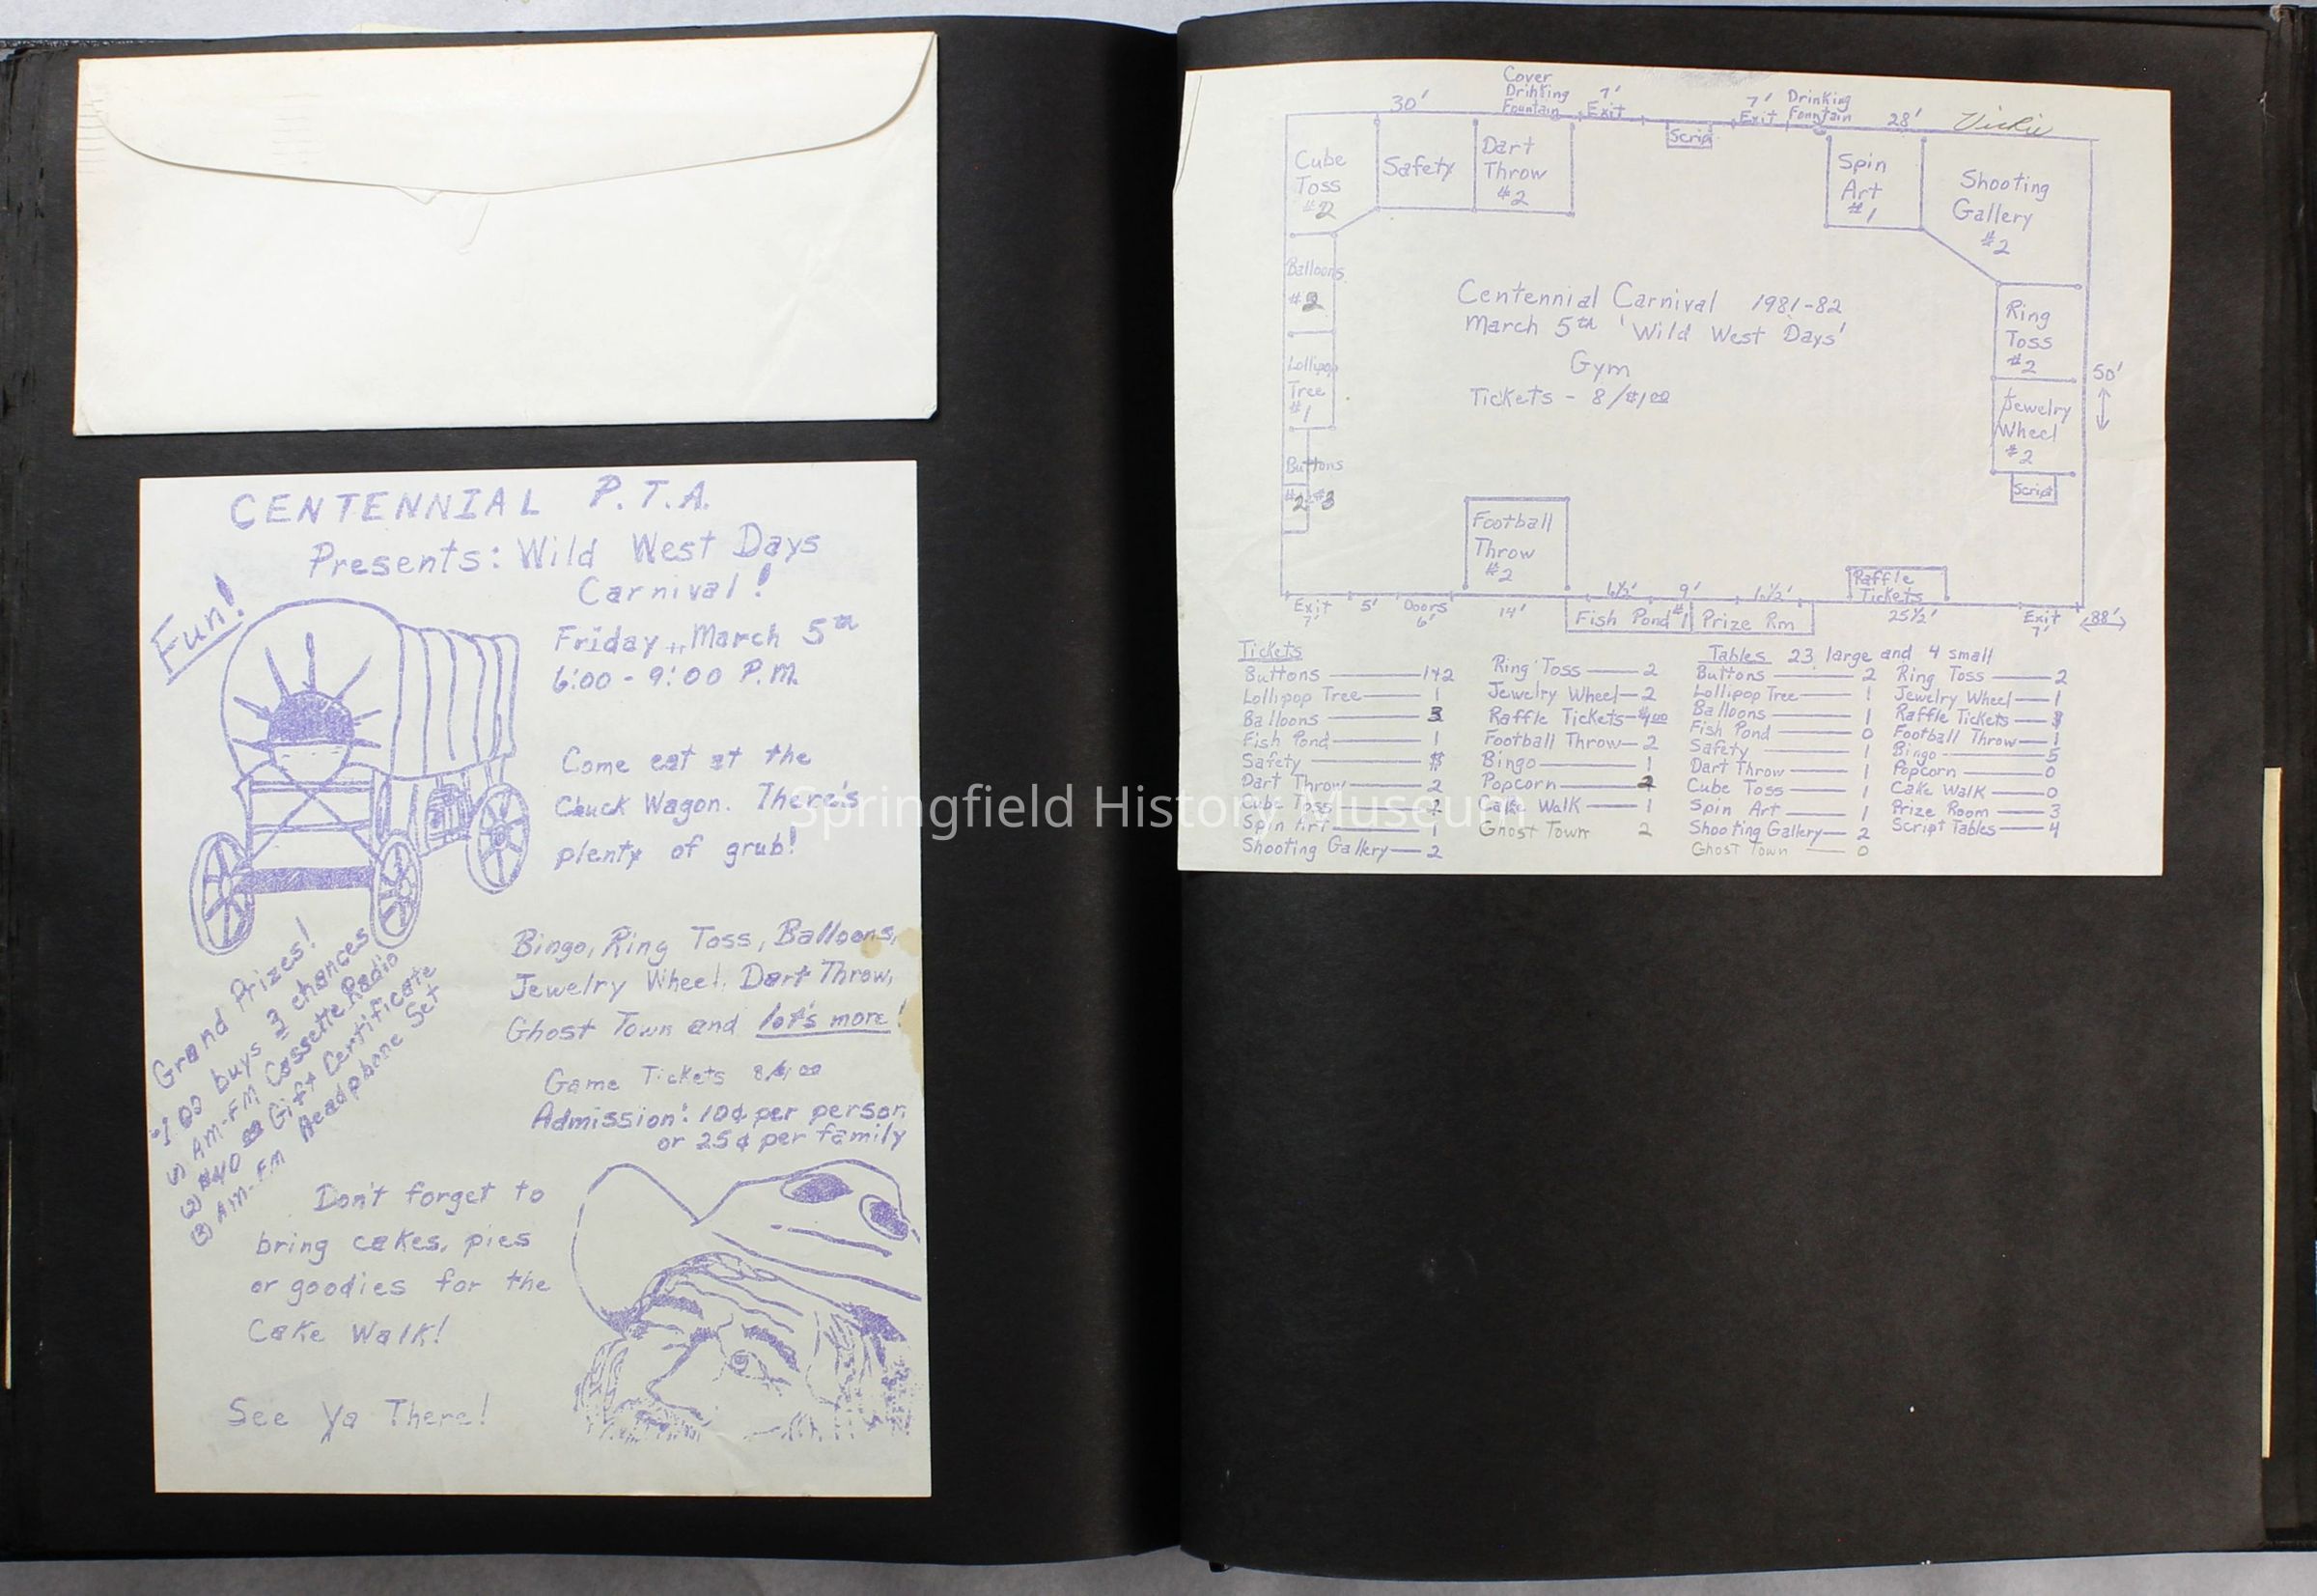 CENTENNIAL P.T.A.
Presents: Wild West Days
Carnival!
Fun!
Friday, March 5th
6:00 - 9:00 P.M.
Come eat at the
Chuck Wagon. There's
plenty of grub!
Bingo, Ring Toss, Balloons,
Jewelry Wheel, Dart Throw,
Ghost Town and lot's more!
Game Tickets 8/$1.00
Admission: 10¢ per person
or 25¢ per family
Grand Prizes!
$1.00 buys 3 chances
1) AM-FM Cassette Radio
2) $40.00 Gift Certificate
3) AM-FM Headphone Set
Don't forget to
bring cakes, pies
or goodies for the
Cake Walk!
See Ya There!
30'
Cover
Drinking
Fountain
7'
Exit
7'
Exit
Drinking
Fountain
28'
Vickie
Cube
Toss
#2
Safety
Dart
Throw
#2
Script
Spin
Art
#1
Shooting
Gallery
#2
Balloons
Lollipop
Tree
#1
Buttons
Centennial Carnival 1981-82
March 5th 'Wild West Days'
Gym
Tickets - 8/$1.00
Ring
Toss
#2
Jewelry
Wheel
#2
Script
50'
Football
Throw
#2
Raffle
Tickets
Exit
7'
5'
Doors
6'
14'
6½'
9'
Fish Pond #1
Prize Rm
25½'
Exit
7'
88'
Tickets
Buttons 1+2
Lollipop Tree 1
Balloons 3
Fish Pond 1
Safety
Dart Throw 2
Cube Toss 2
Spin Art 1
Shooting Gallery 2
Ring Toss 2
Jewelry Wheel 2
Raffle Tickets $1.00
Football Throw 2
Bingo 1
Popcorn 2
Cake Walk 1
Ghost Town 2
Tables 23 large and 4 small
Buttons 2
Lollipop Tree 1
Balloons 1
Fish Pond 0
Safety 1
Dart Throw 1
Cube Toss 1
Spin Art 1
Shooting Gallery 2
Ghost Town 0
Ring Toss 2
Jewelry Wheel 1
Raffle Tickets
Football Throw 1
Bingo 5
Popcorn 0
Cake Walk 0
Prize Room 3
Script Tables 4
Springfield History Museum